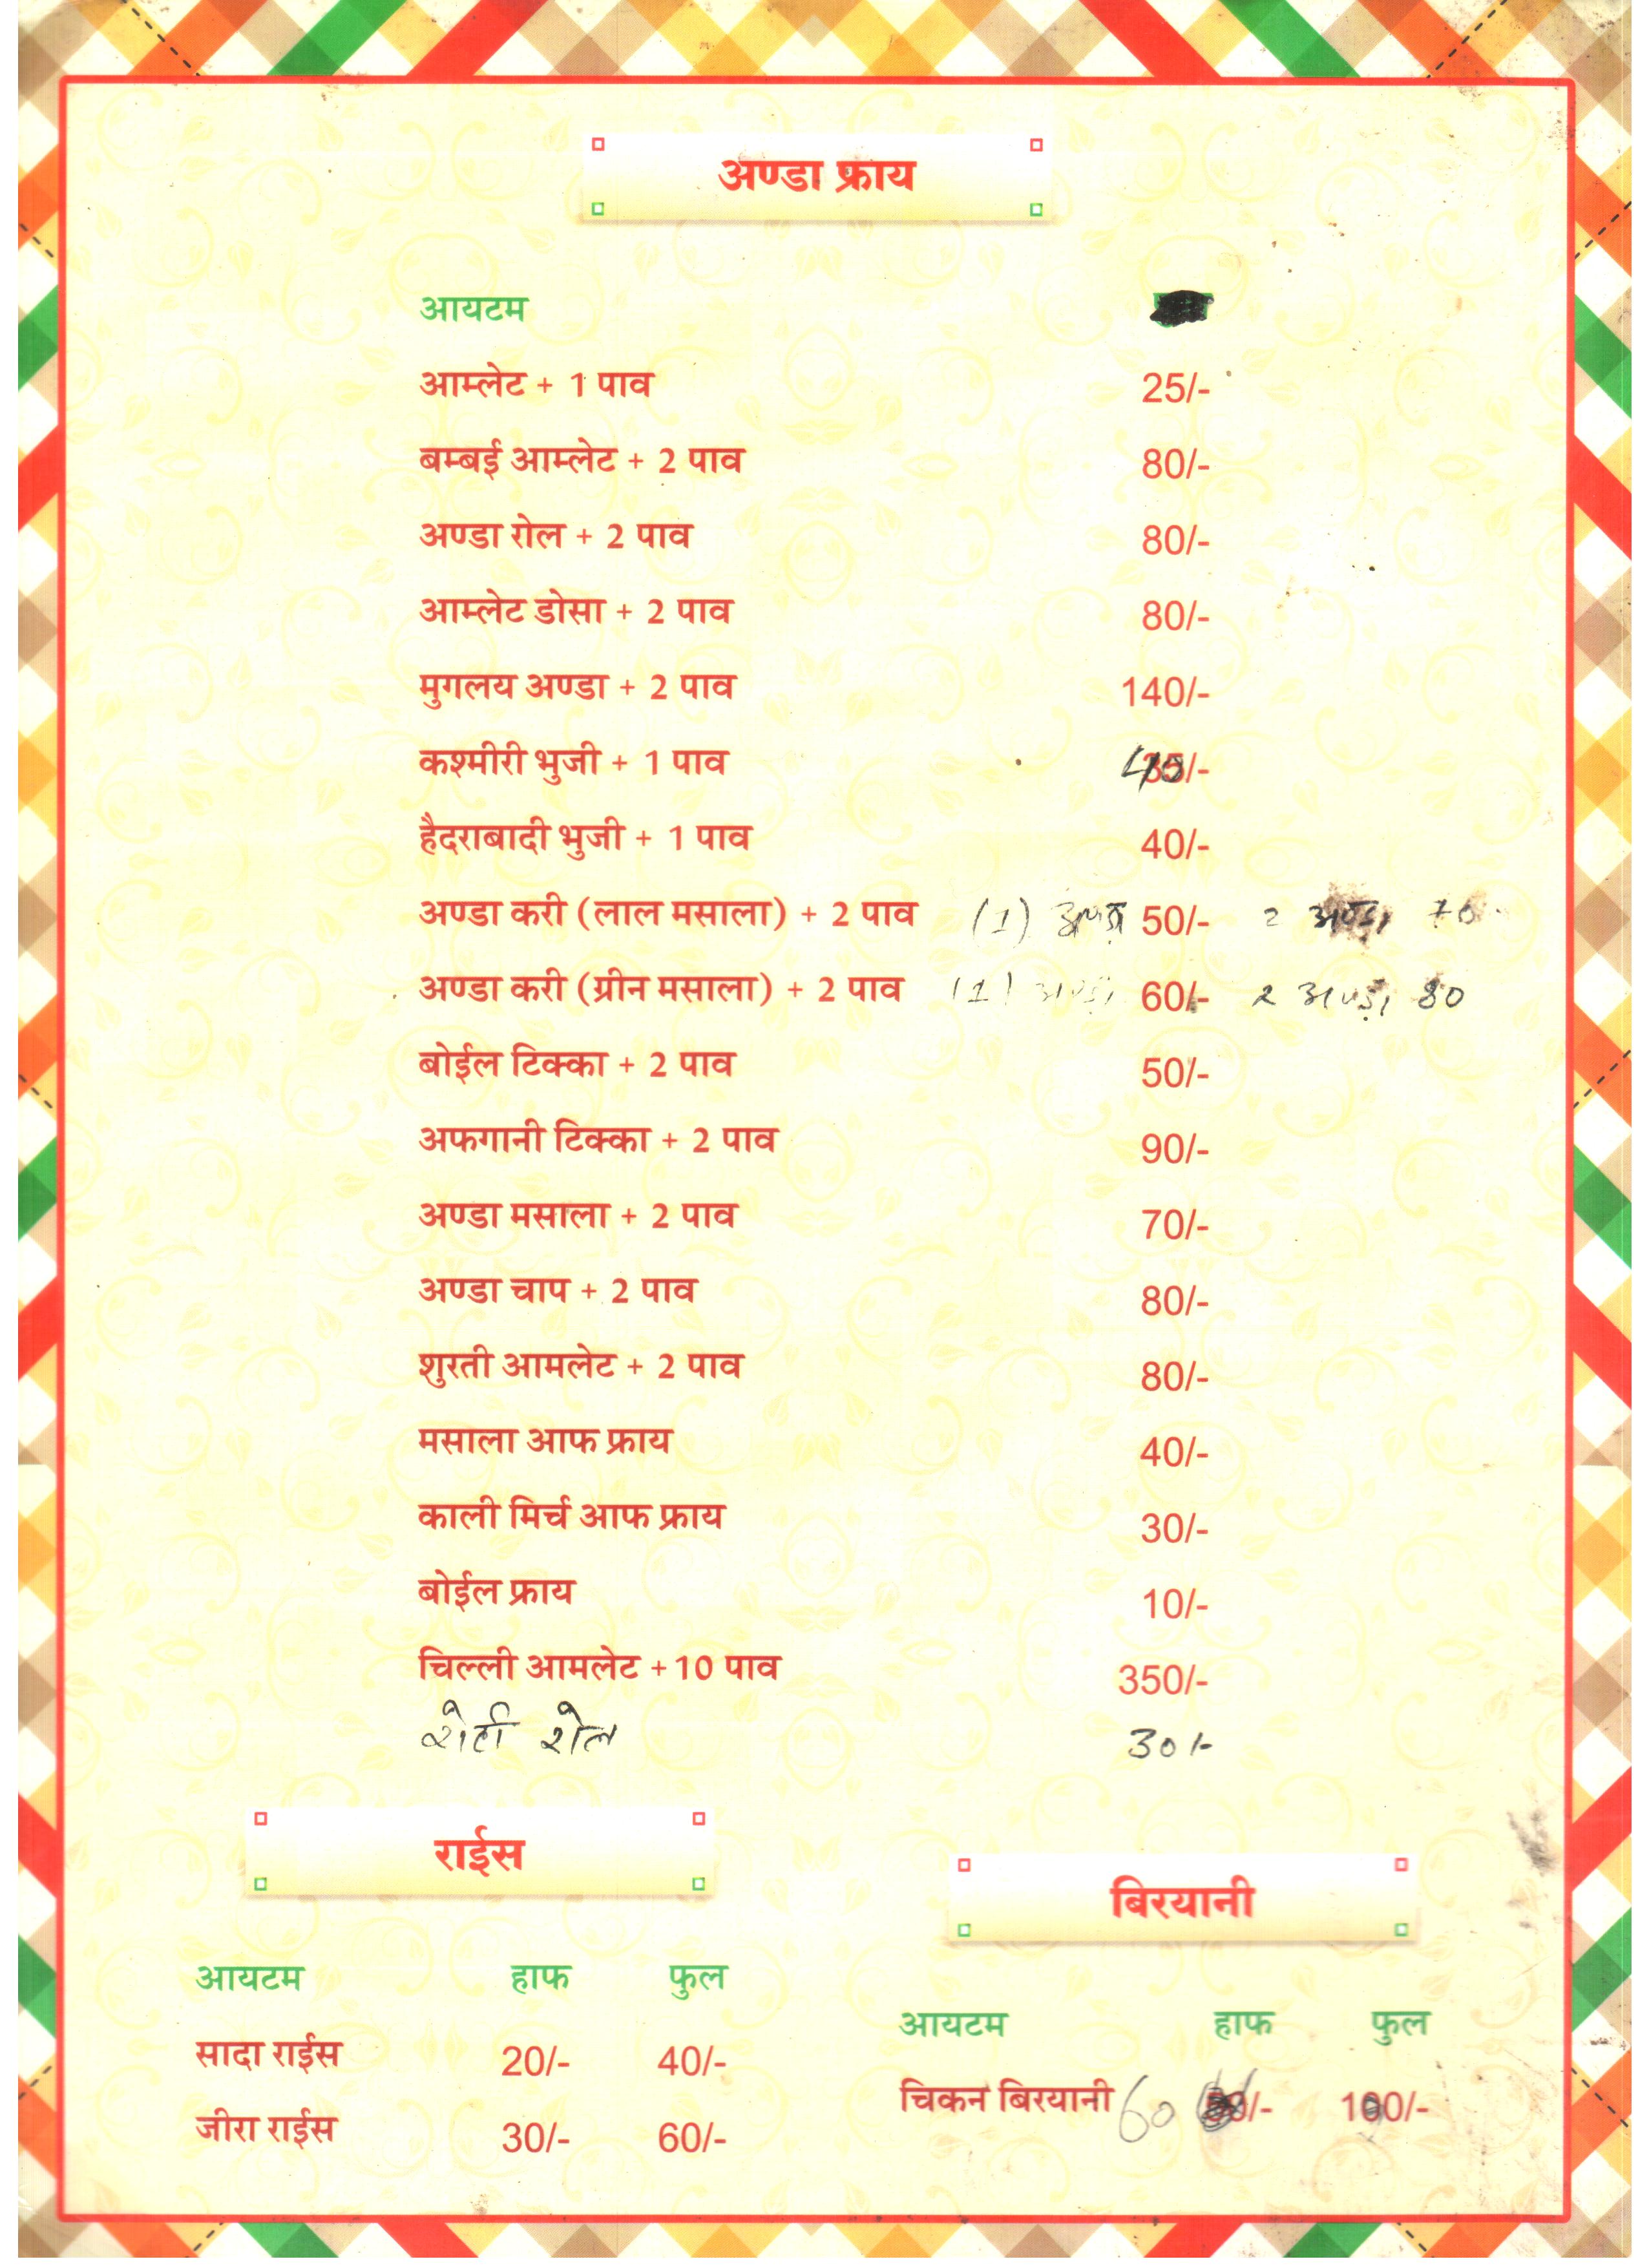 अण्डा फ्राय
आयटम
आम्लेट + 1 पाव 25/-
बम्बई आम्लेट + 2 पाव 80/-
अण्डा रोल + 2 पाव 80/-
आम्लेट डोसा + 2 पाव 80/-
मुगलय अण्डा + 2 पाव 140/-
कश्मीरी भुजी + 1 पाव 40/-
हैदराबादी भुजी + 1 पाव 40/-
अण्डा करी (लाल मसाला) + 2 पाव (1) अण्डा 50/- 2 अण्डा 70
अण्डा करी (ग्रीन मसाला) + 2 पाव (1) अण्डा 60/- 2 अण्डा 80
बोईल टिक्का + 2 पाव 50/-
अफगानी टिक्का + 2 पाव 90/-
अण्डा मसाला + 2 पाव 70/-
अण्डा चाप + 2 पाव 80/-
शुरती आमलेट + 2 पाव 80/-
मसाला आफ फ्राय 40/-
काली मिर्च आफ फ्राय 30/-
बोईल फ्राय 10/-
चिल्ली आमलेट +10 पाव 350/-
रोटी रोल 30/-
राईस
आयटम हाफ फुल
सादा राईस 20/- 40/-
जीरा राईस 30/- 60/-
बिरयानी
आयटम हाफ फुल
चिकन बिरयानी 60